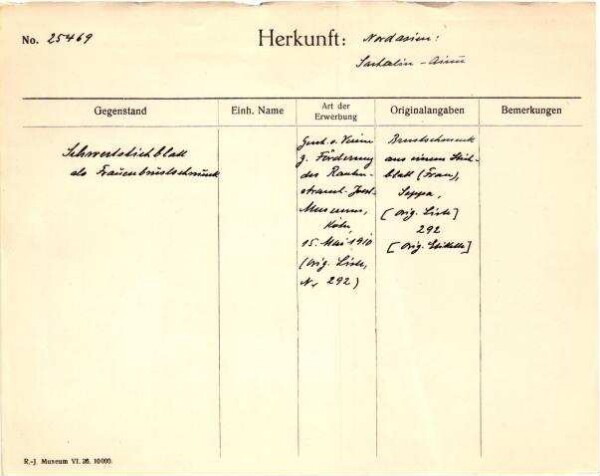 No. 25469
Herkunft: Nordasien:
Sachalin - Ainu
Gegenstand
Einh. Name
Art der
Erwerbung
Originalangaben
Bemerkungen
Schwertstichblatt
als Frauenbrustschmuck
Gesch. v. Verein
z. Förderung
des Rauten-
strauch-Joest-
Museums,
Köln,
15. Mai 1910
(Orig. Liste,
Nr 292)
Brustschmuck
aus einem Stich-
blatt (Frau),
Seppa,
[Orig. Liste]
292
[Orig. Etikette]
R.-J. Museum VI. 26. 10000.